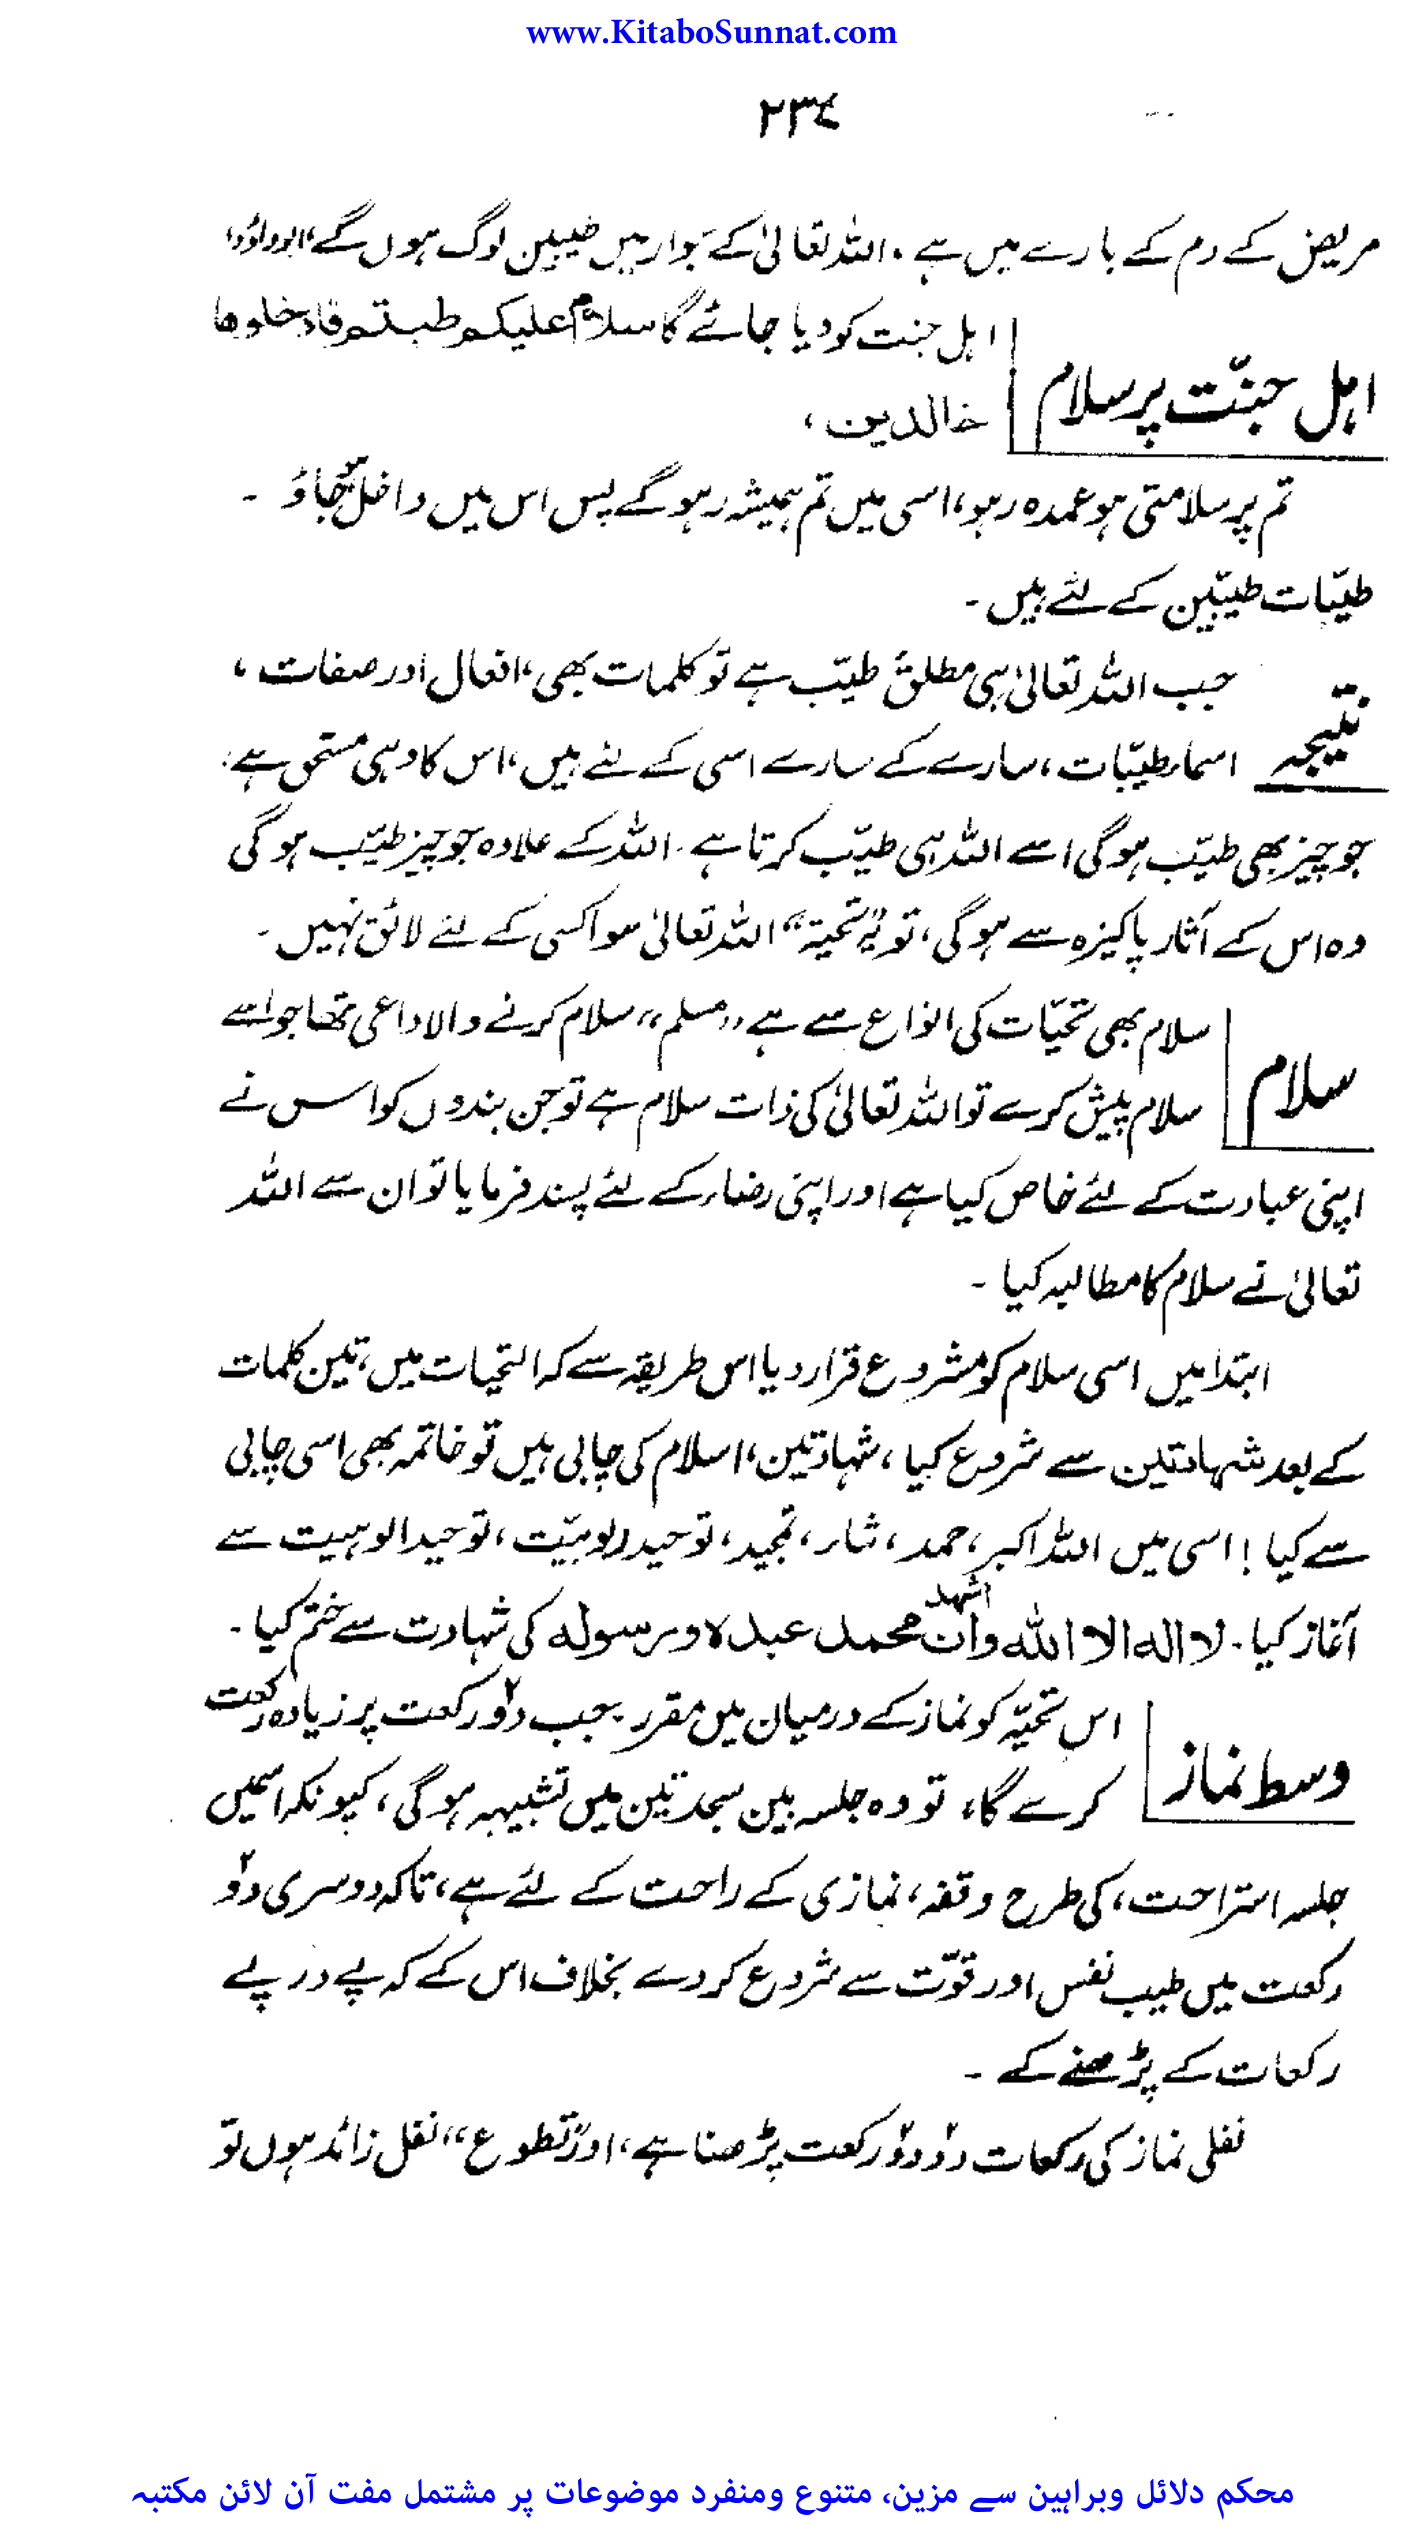 www.KitaboSunnat.com
۲۳۴
مریض کے دم کے بارے میں ہے، اللہ تعالیٰ کے جوار میں طیبین لوگ ہوں گے "ابوداؤد"
اہل جنت پر سلام
اہل جنت کو دیا جائے گا سلام علیکم طبتم فادخلوھا
خالدین،
تم پر سلامتی ہو عمدہ رہو، اسی میں تم ہمیشہ رہو گے پس اس میں داخل ہو جاؤ ۔
طیّبات طیّبین کے لئے ہیں ۔
نتیجہ
جب اللہ تعالیٰ ہی مطلق طیّب ہے تو کلمات بھی، افعال اور صفات،
اسماء طیّبات، سارے کے سارے اسی کے لئے ہیں، اس کا وہی مستحق ہے،
جو چیز بھی طیّب ہو گی اسے اللہ ہی طیّب کرتا ہے۔ اللہ کے علاوہ جو چیز طیّب ہو گی
وہ اس کے آثار پاکیزہ سے ہو گی، تو یہ "تحیۃ" اللہ تعالیٰ سوا کسی کے لئے لائق نہیں ۔
سلام
سلام بھی تحیّات کی انواع سے ہے "مسلم" سلام کرنے والا داعی تھا جو اسے
سلام پیش کرے تو اللہ تعالیٰ کی ذات سلام ہے تو جن بندوں کو اس نے
اپنی عبادت کے لئے خاص کیا ہے اور اپنی رضاء کے لئے پسند فرمایا تو ان سے اللہ
تعالیٰ نے سلام کا مطالبہ کیا ۔
ابتدا میں اسی سلام کو مشروع قرار دیا اس طریقہ سے کہ التحیات میں، تین کلمات
کے بعد شہادتین سے شروع کیا، شہادتین، اسلام کی چابی ہیں تو خاتمہ بھی اسی چابی
سے کیا ! اسی میں اللہ اکبر، حمد، ثناء، تمجید، توحید ربوبیّت، توحید الوہیت سے
آغاز کیا۔ لا الہ الا اللہ واشھد ان محمد عبدہ ورسولہ کی شہادت سے ختم کیا ۔
وسط نماز
اس تحیّہ کو نماز کے درمیان میں مقرر۔ جب دو۲ رکعت پر زیادہ رکعت
کرے گا، تو وہ جلسہ بین سجدتین میں تشبیہہ ہو گی، کیونکہ اسمیں
جلسہ استراحت، کی طرح وقفہ، نمازی کے راحت کے لئے ہے، تاکہ دوسری دو۲
رکعت میں طیب نفس اور قوّت سے شروع کر دے بخلاف اس کے کہ پے در پے
رکعات کے پڑھنے کے ۔
نفلی نماز کی رکعات دو۲ دو۲ رکعت پڑھنا ہے، اور "تطوع" نفل زائد ہوں تو
محکم دلائل وبراہین سے مزین، متنوع ومنفرد موضوعات پر مشتمل مفت آن لائن مکتبہ